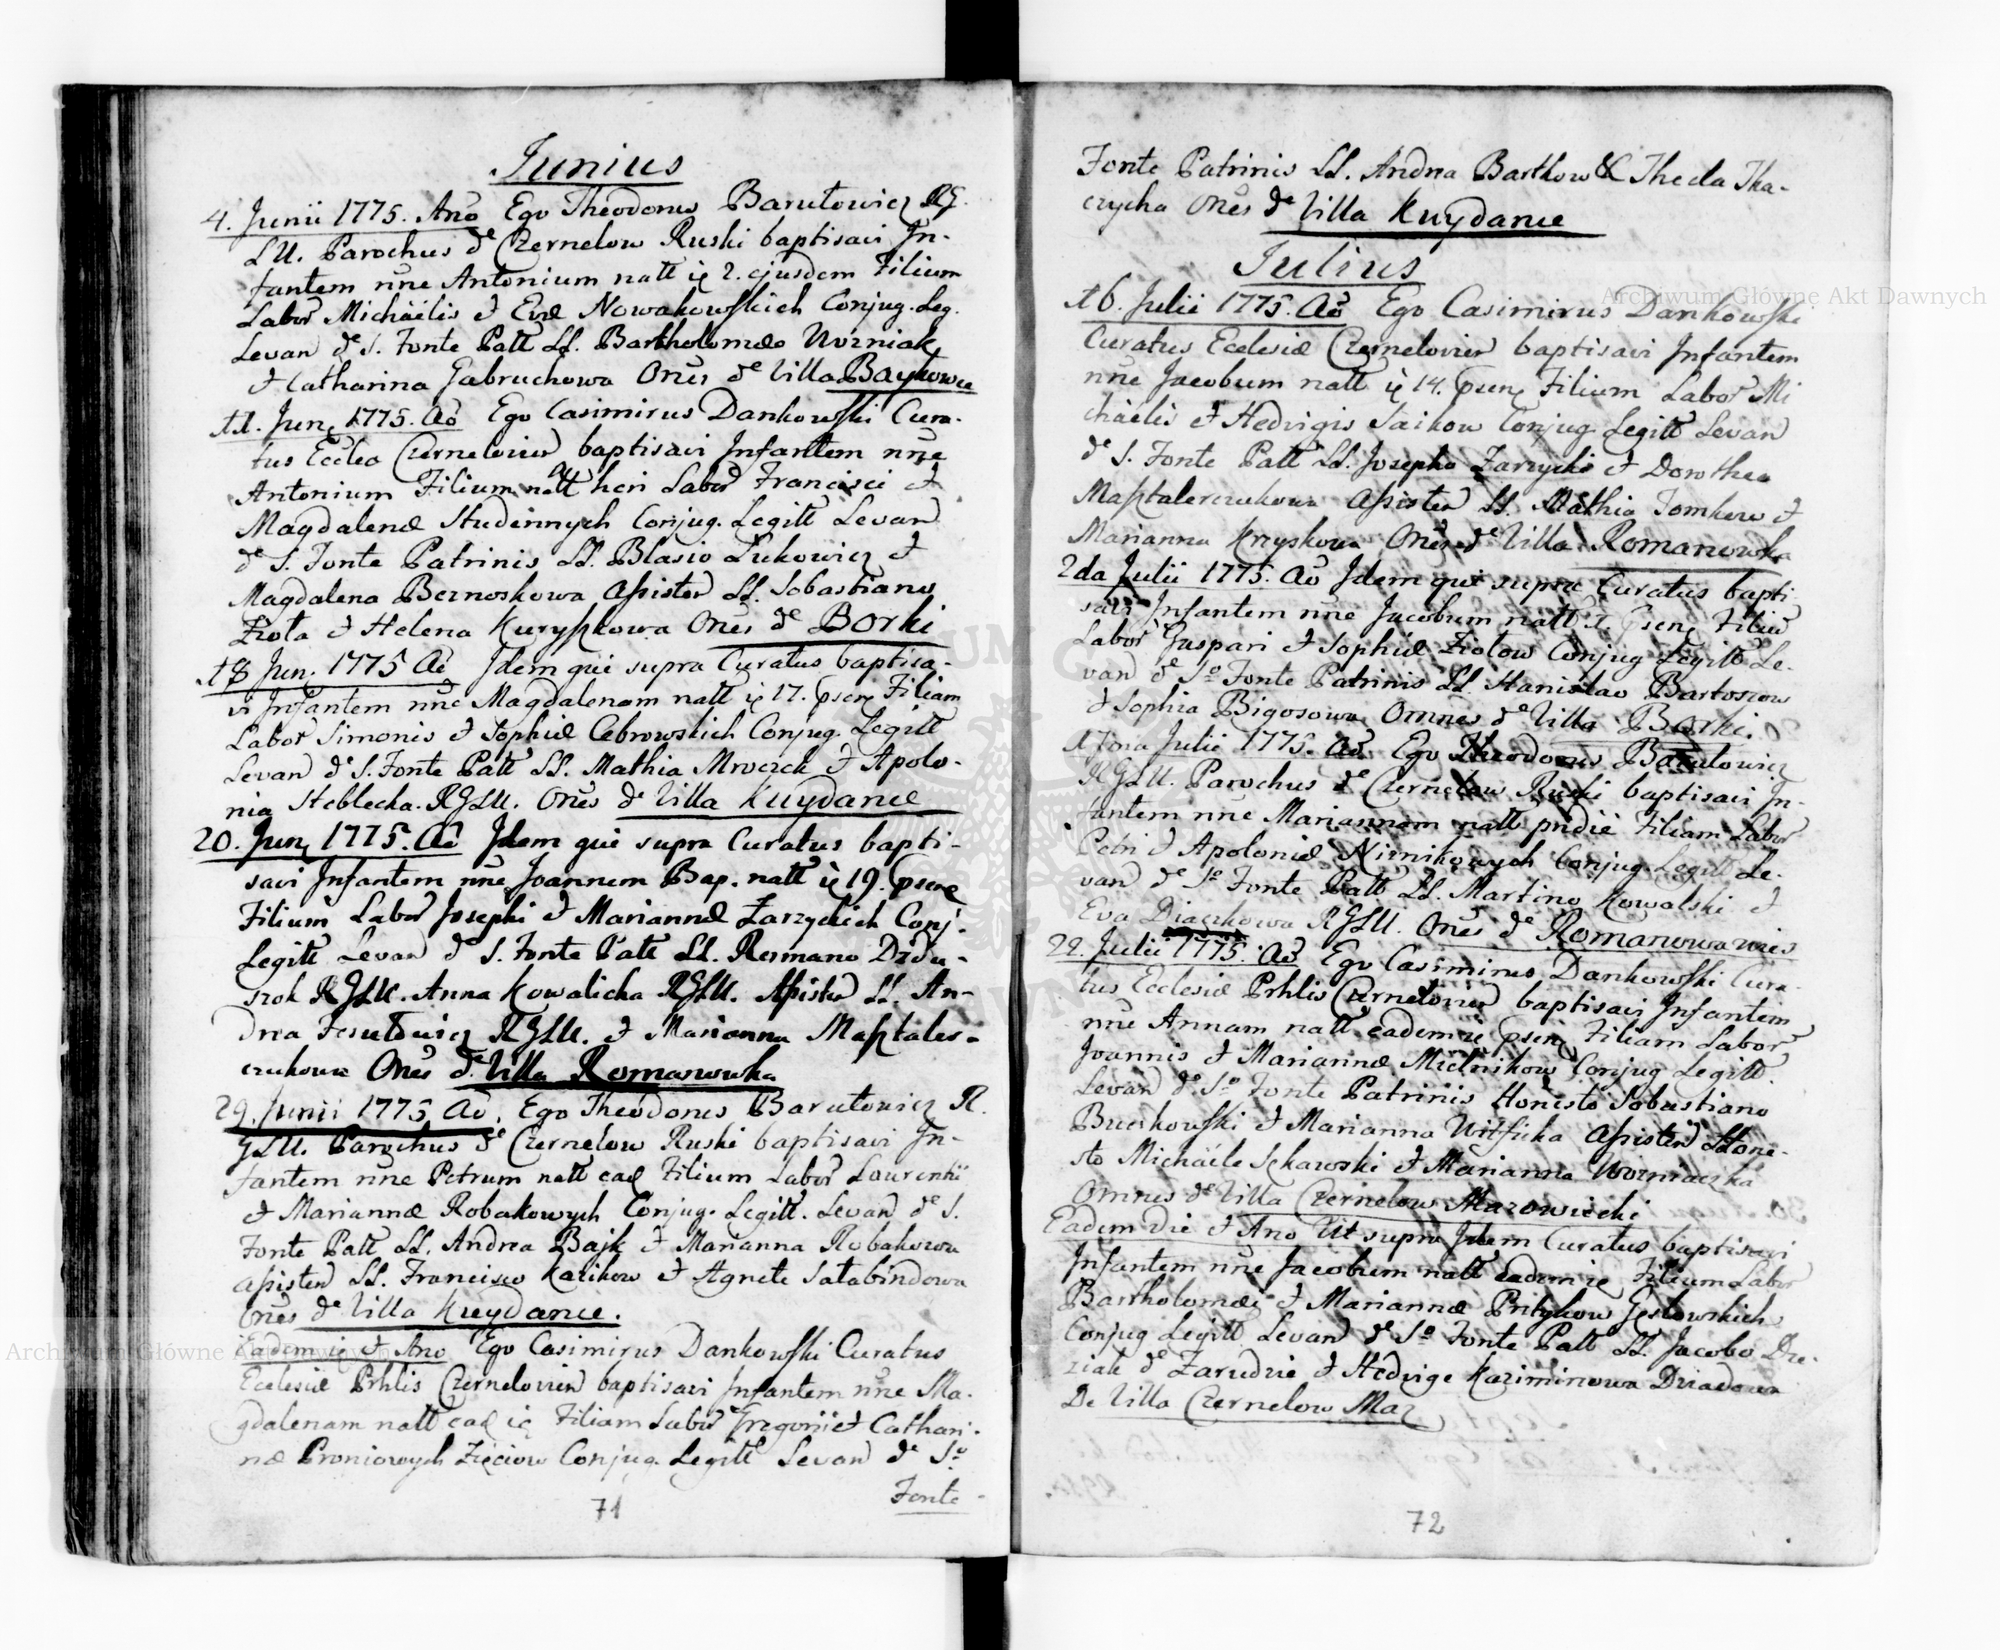 Junius
4. Junii 1775. Ano Ego Theodorus Barutowicz RG.
LU. Parochus de Czernelow Ruski baptisavi In-
fantem nne Antonium natt 2. ejusdem Filium
Labor Michaelis et Evæ Nowakowskich Conjug. Leg.
Levan de S. Fonte Patt LL. Bartholomæo Wozniak
et Catharina Gabruchowa Ones de Villa Baykowce
11. Jun 1775. Ao Ego Casimirus Dankowski Cura-
tus Ecclea Czerneloviens baptisavi Infantem nne
Antonium Filium natt heri Labor Francisci et
Magdalenæ Studennych Conjug. Legitt Levan
de S. Fonte Patrinis LL. Blasio Lukowicz et
Magdalena Beznoskowa Assisten LL. Sobastiano
Ziota et Helena Kuryszkowa Ones de Borki
18 Jun. 1775 Ao Idem qui supra Curatus baptisa-
vi Infantem nne Magdalenam natt 17. psens Filiam
Labor Simonis et Sophiæ Cebrowskich Conjug. Legitt
Levan de S. Fonte Patt LL. Mathia Mroczek et Apolo-
nia Steblecka. RGLU. Ones de Villa Kuydance
20. Jun 1775. Ao Idem qui supra Curatus bapti-
savi Infantem nne Joannem Bap. natt 19. psens
Filium Labor Josephi et Mariannæ Zarzyckich Conj.
Legitt Levan de S. Fonte Patt LL. Romano Dzdu-
szok RGLU. Anna Kowalicha RGLU. Assisten LL. An-
drea RGLU. et Marianna Masztaler-
czukowa Ones de Villa Romanowka
29. Junii 1775 Ao. Ego Theodorus Barutowicz R.
GLU. Parochus de Czernelow Ruski baptisavi In-
fantem nne Petrum natt ead Filium Labor Laurentii
et Mariannæ Robakowych Conjug. Legitt. Levan de S.
Fonte Patt LL. Andrea Bajk et Marianna Robakowa
Assisten LL. Francisco Kazikow et Agnete Satabindowa
Ones de Villa Kuydance.
Eadem et Ano Ego Casimirus Dankowski Curatus
Ecclesiæ Prhlis Czerneloviens baptisavi Infantem nne Ma-
gdalenam natt ead Filiam Labor Gregorii et Cathari-
næ Proniowych Zięciow Conjug. Legitt Levan de So
Fonte
71
Fonte Patrinis LL. Andrea Bartkow & Thecla Tka-
czycha Ones de Villa Kuydance
Julius
16. Julii 1775. Ao Ego Casimirus Dankowski
Curatus Ecclesiæ Czerneloviens baptisavi Infantem
nne Jacobum natt 14. psens Filium Labor Mi
chaelis et Hedvigis Saikow Conjug Legitt Levan
de S. Fonte Patt LL. Josepho Zarzycki et Dorothea
Masztalerczukowa Assisten LL. Mathia Tomkow et
Marianna Kryskowa Ones de Villa Romanowka
2da Julii 1775. Ao Idem qui supra Curatus bapti-
savi Infantem nne Jacobum natt psens Filiu
Labor Gaspari et Sophiæ Ziotow Conjug Legitt Le-
van de So Fonte Patrinis LL. Stanislao Bartoszow
et Sophia Bigosowa Omnes de Villa Borki.
Julii 1775. Ao Ego Theodorus Barutowicz
RGLU. Parochus de Czernelow Ruski baptisavi In-
fantem nne Mariannam natt pridie Filiam Labor
Petri et Apoloniæ Conjug. Legitt Le-
van de So Fonte Patt LL. Martino Kowalski et
Eva Diaczkowa RGLU. Ones de Romanowawies
22. Julii 1775. Ao Ego Casimirus Dankowski Cura-
tus Ecclesiæ Prhlis Czerneloviens baptisavi Infantem
nne Annam natt eadem psens Filiam Labor
Joannis et Mariannæ Mielnikow Conjug Legitt.
Levan de So Fonte Patrinis Honesto Sobastiano
Buczkowski et Marianna Assisten Hone-
sto Michaele Sękowski et Marianna Wozniaczka
Omnes de Villa Czernelow Mazowiecki
Eadem die et Ano Ut supra Idem Curatus baptisavi
Infantem nne Jacobum natt eadem Filium Labor
Bartholomæi et Mariannæ Pritykow
Conjug Legitt Levan de So Fonte Patt LL. Jacobo Dze-
ziak de Zarudzie et Hedvige Kazimirowa Dziadowa
De Villa Czernelow Maz
72
Archiwum Główne Akt Dawnych
Archiwum Główne Akt Dawnych